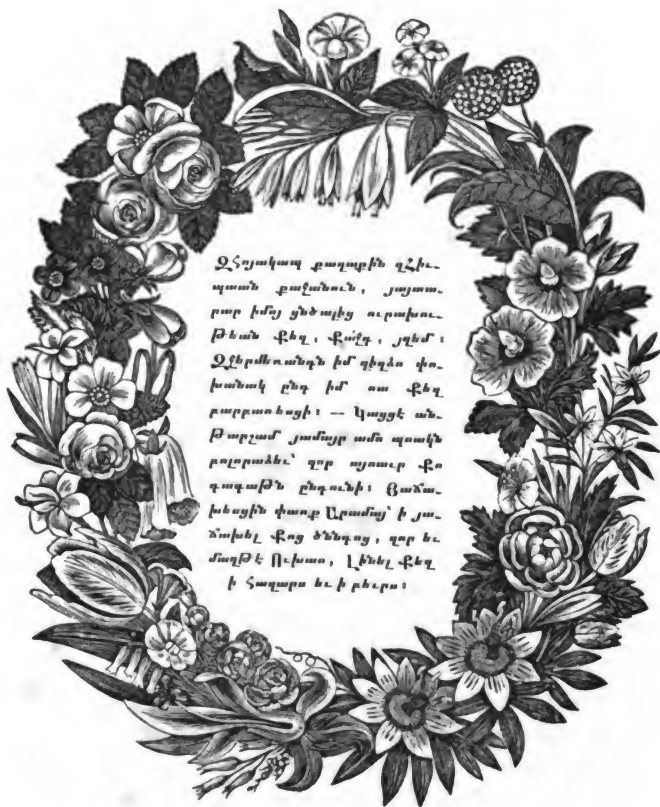 ԶՀոյակապ քաղաքին զՀիւ-
պասն քաջանուն, յայտա-
րար իմոյ ցնծալից ուրախու-
թեան Քեզ, Քա՛ջդ, յղեմ։
Զջերմեռանդն իմ զիղձս փո-
խանակ ընդ իմ առ Քեզ
բարբառեսցի։ — Կացցէ ան-
թարշամ յամայր ամս պսակն
բոլորաձեւ՝ զոր այսաւր Քո
գագաթն ընդունի։ Յաճա-
խեսցին փառք Արամայ՝ ի յա-
ճախել Քոց ծննդոց, զոր եւ
մաղթէ Ուխտս, Լինել Քեզ
ի հազարս եւ ի բեւրս։